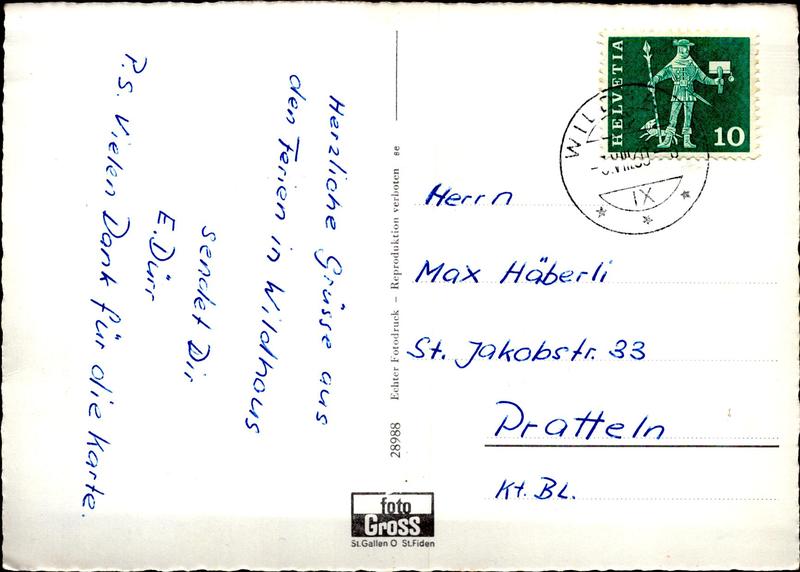 Herzliche Grüsse aus
den Ferien in Wildhaus
sendet Dir
E. Dürr
P.S. Vielen Dank für die Karte.
Echter Fotodruck – Reproduktion verboten
se
28988
foto
Gross
St.Gallen O St.Fiden
HELVETIA
10
IX
Herrn
Max Häberli
St. Jakobstr. 33
Pratteln
Kt. BL.